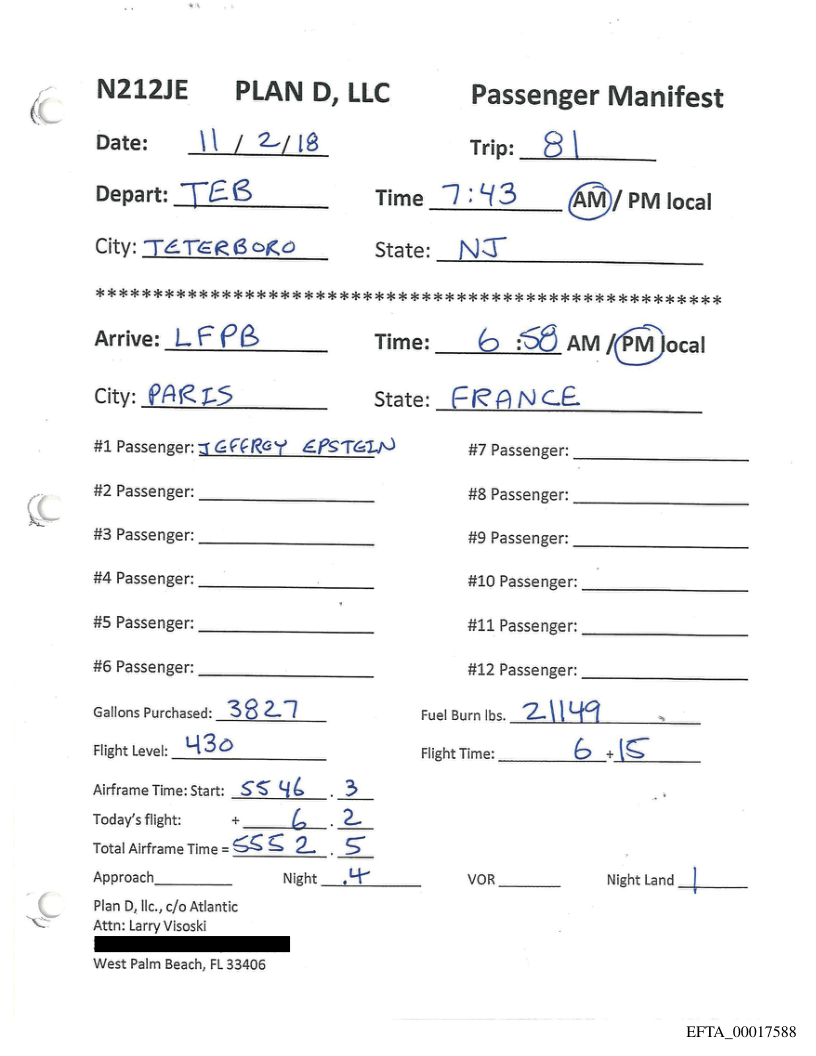 N212JE PLAN D, LLC Passenger Manifest
Date: 11 / 2 / 18 Trip: 81
Depart: TEB Time 7:43 AM / PM local
City: TETERBORO State: NJ
******************************************************
Arrive: LFPB Time: 6 :58 AM / PM local
City: PARIS State: FRANCE
#1 Passenger: JEFFREY EPSTEIN #7 Passenger:
#2 Passenger: #8 Passenger:
#3 Passenger: #9 Passenger:
#4 Passenger: #10 Passenger:
#5 Passenger: #11 Passenger:
#6 Passenger: #12 Passenger:
Gallons Purchased: 3827 Fuel Burn lbs. 21149
Flight Level: 430 Flight Time: 6 + 15
Airframe Time: Start: 5546 . 3
Today's flight: + 6 . 2
Total Airframe Time = 5552 . 5
Approach Night .4 VOR Night Land 1
Plan D, llc., c/o Atlantic
Attn: Larry Visoski
West Palm Beach, FL 33406
EFTA_00017588